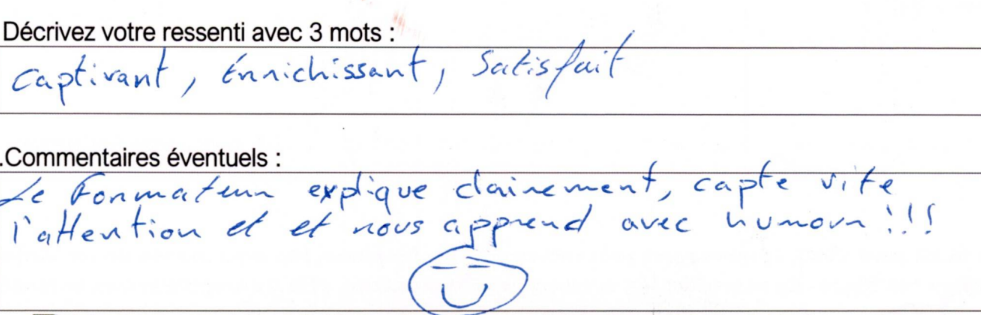 Décrivez votre ressenti avec 3 mots :
Captivant, Enrichissant, Satisfait
.Commentaires éventuels :
Le Formateur explique clairement, capte vite
l'attention et et nous apprend avec humour !!!